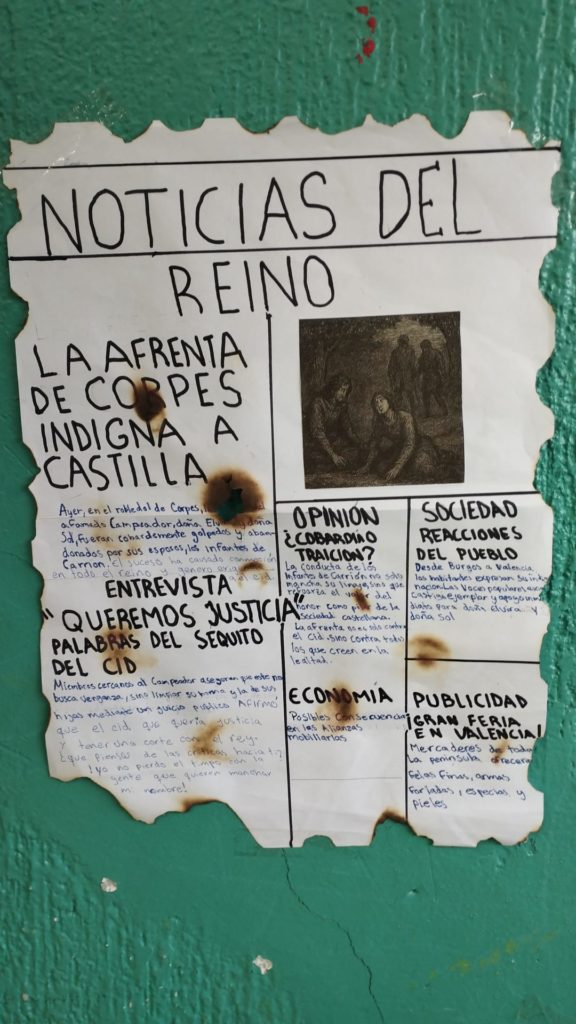 NOTICIAS DEL
REINO
LA AFRENTA
DE CORPES
INDIGNA A
CASTILLA
Ayer, en el robledal de Corpes,
afamado Campeador, doña Elvira y doña
Sol, fueran cobardemente golpadas y aban
donadas por sus esposos, los infantes de
Carrion. El suceso ha causado
en todo el reino y
ENTREVISTA
"QUEREMOS JUSTICIA"
PALABRAS DEL SEQUITO
DEL CID
Miembros cercanos al Campeador aseguran que este no
busca venganza, sino limpiar su forma y la de sus
hijas mediante un juicio publico. AFIRMÓ
que el cid que quería justicia
y tener una corte con el rey.
¿que piensas de las criticas hacia ti?
!yo no pierdo el timpo con la
gente que quieren manchar
mi nombre!
OPINIÓN
¿COBARDIA O
TRAICION?
La conducta de los
infantes de Carrión no solo
mancha su linaje, sino que
refuerza el valor del
honor como pilar de la
sociedad castellana.
La afrenta no es solo contra
el cid sino contra todos
los que creen en la
lealtad.
SOCIEDAD
REACCIONES
DEL PUEBLO
Desde Burgos a Valencia,
los habitantes expresan su
Voces populares
Castigo ejemplar y apoyo
para doña elvira y
doña sol
ECONOMÍA
Posibles Consecuencias
en las Alianzas
mobiliarias
PUBLICIDAD
¡GRAN FERIA
EN VALENCIA!
Mercaderes de toda
la peninsula ofrecera
telas finas, armas
forjadas, especias y
pieles